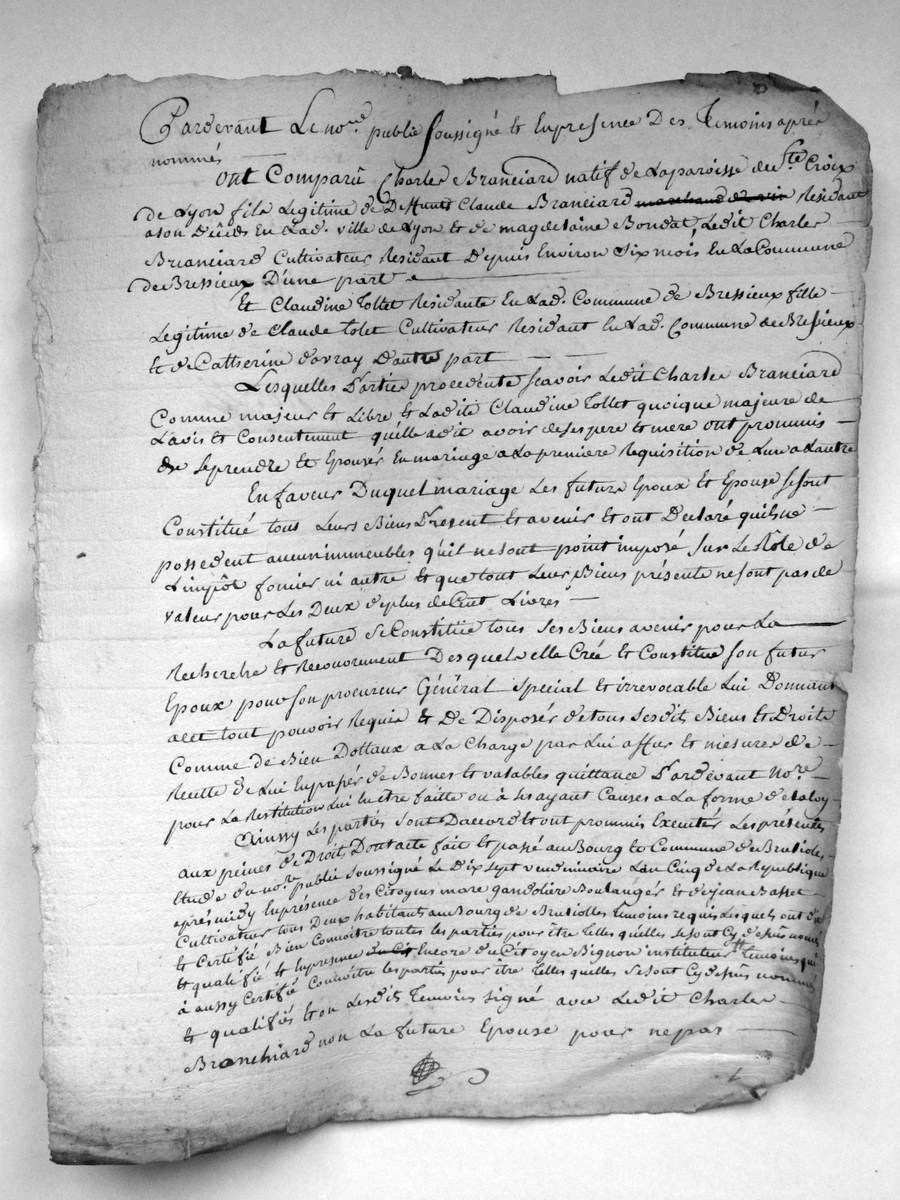 Pardevant Le no.re public soussigné et En presence Des Temoins aprés
nommés
Ont Comparû Charles Branciard natif de La paroisse de Ste Croix
de Lyon fils Legitime de Claude Branciard marchand de vin Residant
a son Décéds En Lad. ville de Lyon et de magdelaine Bondat, Ledit Charles
Branciard Cultivateur Residant Depuis Environ Six mois En La Commune
de Bressieux D'une part
Et Claudine Tollet Residante En Lad. Commune de Bressieux fille
Legitime de Claude Tolet Cultivateur Residant En Lad. Commune de Bressieux
et de Catherine d'avray D'autre part
Lesquelles Parties procedente scavoir Ledit Charles Branciard
Comme majeur et Libre et Ladite Claudine Tollet quoique majeure de
L'avis et Consentement qu'elle a dit avoir de ses pere et mere ont prommis
de Se prendre et Epousér En mariage a La premiere Requisition de L'un a L'autre
En faveur Duquel mariage Les future Epoux et Epouse se sont
Constitué tous Leurs Biens Présent et avenir et ont Declaré qu'ils ne
possedent aucun immeubles qu'il ne sont point imposé Sur Le Rôle de
L'impôt foncier ni autre et que tout Leur Biens présents ne sont pas de
valeur pour Les Deux de plus de Cent Livres
La future Se Constituë tous Ses Biens avenir pour La
Recherche et Recouvrement Desquels elle Créé et Constitue son futur
Epoux pour son procureur Général Special et irrevocable Lui Donnant
avec tout pouvoir Requis et De Disposér de tous Sesdits Biens et Droits
Comme de Bien Dottaux a La Charge par Lui affur et mesures de
Recette de Lui En passér de Bonnes et valables quittance Pardevant No.re
pour La Restitution Lui En etre faitte ou à Ses ayant Causes a La forme de La Loy
Ainssy Les parties Sont D'accord et ont prommis Executér Les présentes
aux peines de Droit Dont acte fait et passé au Bourg et Commune de Brussiolles
Etude du no.re public Soussigné Le Dix Sept vendemiaire L'an Cinq de La Republique
aprés midy En présence des Citoyens marc gandolière Boulanger et de jean Basset
Cultivateur tous Deux habitants au Bourg de Brussiolles Temoins requis Lesquels ont dit
et Certifié Bien Connoitre toutes les parties pour être Telles qu'elles Se sont Cy depuis nommé
et qualifié et En presence Encore du Citoyen Bignon instituteur Temoins qui
à aussy Certifié Connoitre les parties pour être Telles quelles Se Sont Cy depuis nommé
et qualifiés et ou Lesdits Temoins signé avec Ledit Charles
Branchiard non La future Epouse pour ne pas